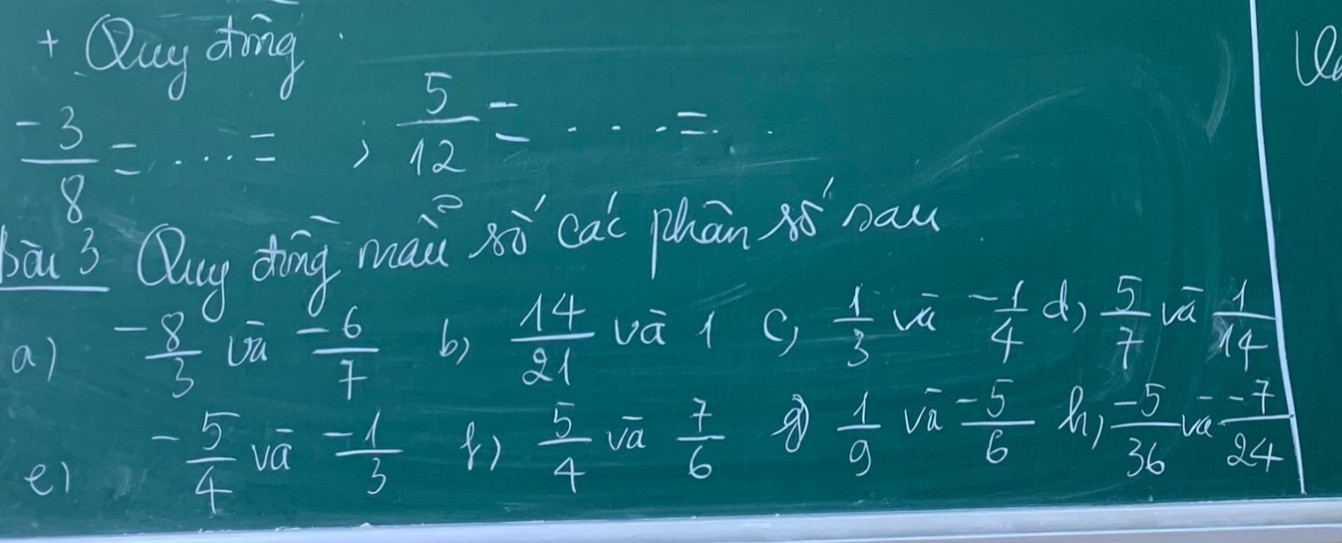 + Quy đồng
-3/8 = ... = ; 5/12 = ... = ...
Bài 3 Quy đồng mẫu số các phân số sau
a) -8/3 và -6/7 b) 14/21 và 1 c) 1/3 và -1/4 d) 5/7 và 1/14
e) -5/4 và -1/3 f) 5/4 và 7/6 g) 1/9 và -5/6 h) -5/36 và -7/24